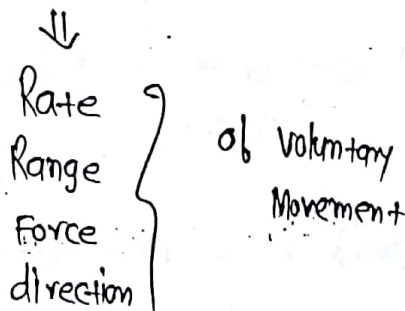 ⇓
Rate
Range
Force
direction
of voluntary
Movement